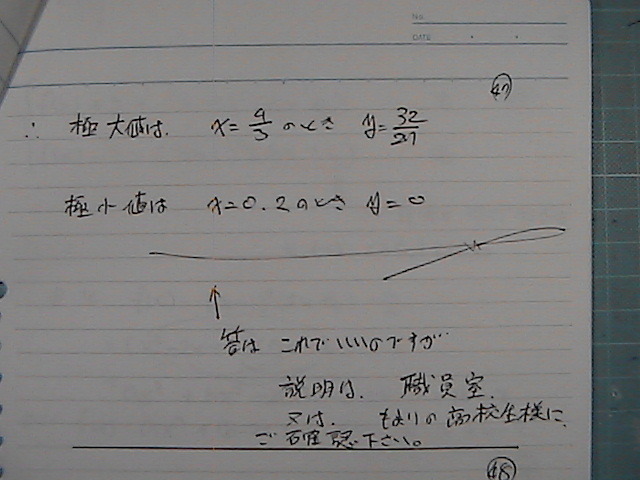 No.
DATE
47
∴ 極大値は、 x=4/3のとき y=32/27
極小値は x=0.2のとき y=0
答は これでいいのですが
説明は、 職員室、
又は、 もよりの高校生様に、
ご確認下さい。
48